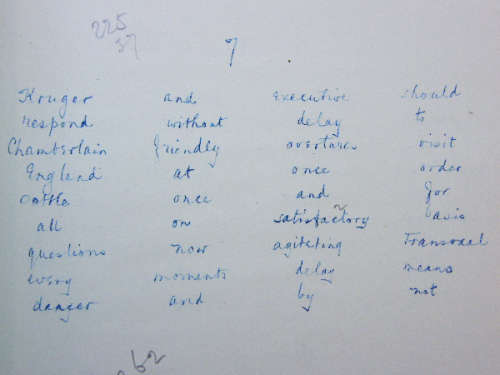 225
37
7
Kruger and executive should
respond without delay to
Chamberlain friendly overtures visit
England at once order
settle once and for
all on satisfactory axis
questions now agitating Transvaal
every moments delay means
danger and by not
262